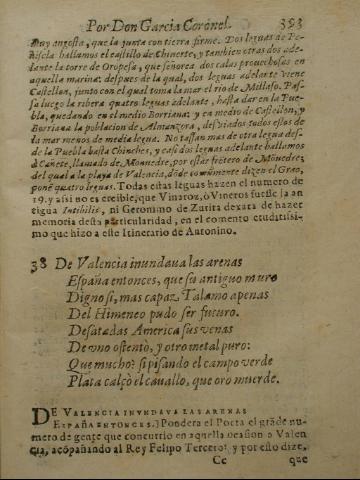 Por Don Garcia Coronel. 393
Muy angosta, que la junta con tierra firme. Dos leguas de Pe-
ñiscla hallamos el castillo de Chinerte, y tambien otras dos ade-
lante la torre de Oropesa, que señorea dos calas prouechosas en
aquella marina: despues de la qual, dos leguas adelante viene
Castellon, junto con el qual toma la mar el rio de Millaso. Pas-
sa luego la ribera quatro leguas adelante, hasta dar en la Pue-
bla, quedando en el medio Borriana: y en medio de Castellon, y
Borriana la poblacion de Almanzora, desviados todos ellos de
la mar menos de media legua. No passan mas de otra legua des-
de la Puebla hasta Chinches, y casi dos leguas adelante hallamos
à Cañete, llamado de Monuedre, por estar frōtero de Mōuedre;
del qual a la playa de Valencia, dōde comūmente dizen el Grao,
ponē quatro leguas. Todas estas leguas hazen el numero de
19. y assi no es creible, que Vinaroz, ò Vineros fuesse la an
tigua Intibilis, ni Geronimo de Zurita dexara de hazer
memoria desta particularidad, en el comento eruditissi-
mo que hizo a este Itinerario de Antonino.
38 De Valencia inundaua las arenas
España entonces, que su antiguo muro
Digno si, mas capaz Talamo apenas
Del Himeneo pudo ser futuro.
Desatadas America sus venas
De vno ostentò, y otro metal puro:
Que mucho? si pisando el campo verde
Plata calçò el cauallo, que oro muerde.
DE VALENCIA INVNDAVA LAS ARENAS
ESPAÑA ENTONCES.] Pondera el Poeta el grāde nu-
mero de gente que concurrio en aquella ocasion a Valen
cia, acōpañando al Rey Felipo Tercero; y por esto dize,
Cc que